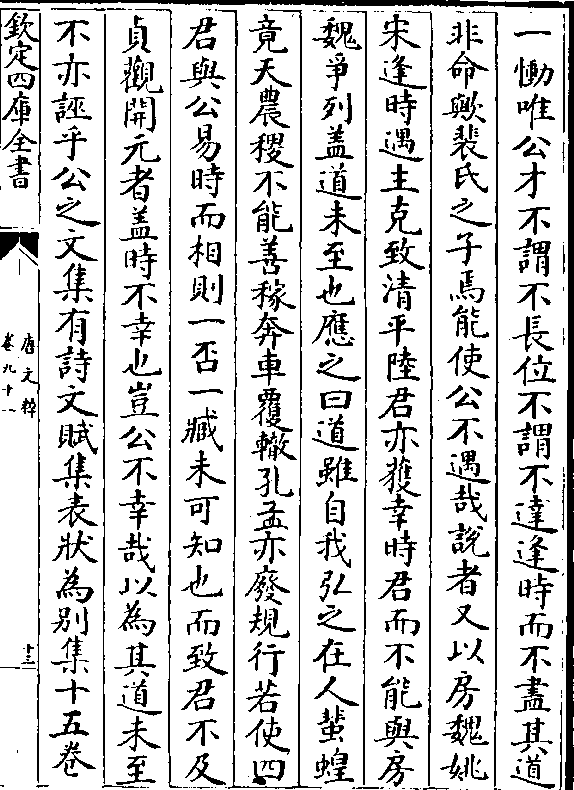 一慟唯公才不謂不長位不謂不達逢時而不盡其道
非命歟裴氏之子焉能使公不遇哉說者又以房魏姚
宋逢時遇主克致清平陸君亦獲幸時君而不能與房
魏爭列盖道未至也應之曰道雖自我弘之在人蜚蝗
竟天農稷不能善稼奔車覆轍孔孟亦廢規行若使四
君與公易時而相則一否一臧未可知也而致君不及
貞觀開元者盖時不幸也豈公不幸哉以為其道未至
不亦誣乎公之文集有詩文賦集表狀為别集十五卷
欽定四庫全書
唐文粹
卷九十一
十三